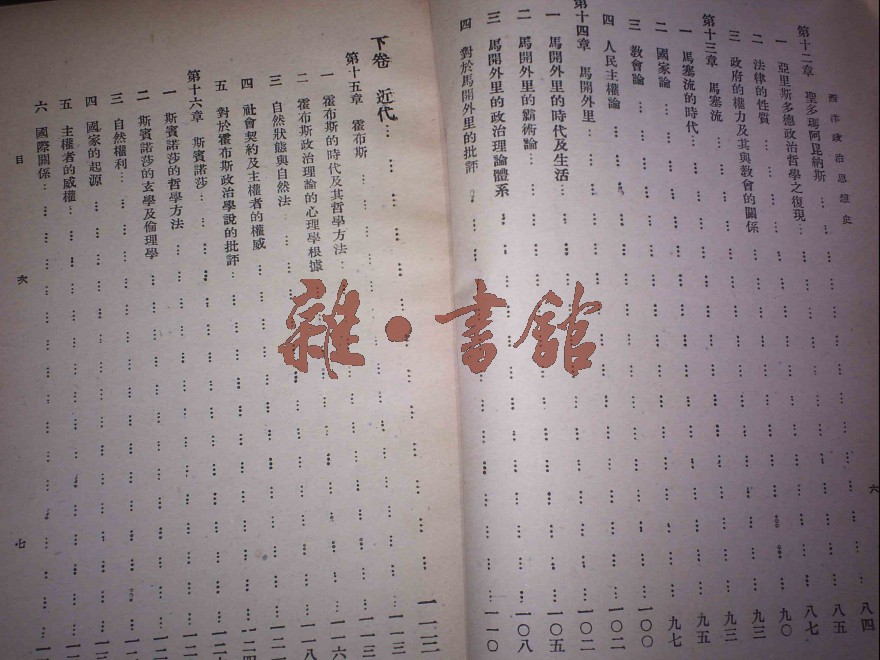 西洋政治思想史
六
第十二章　聖多瑪阿昆納斯……八四
一　亞里斯多德政治哲學之復現……八五
二　法律的性質……八七
三　政府的權力及其與教會的關係……九〇
第十三章　馬塞流……九三
一　馬塞流的時代……九三
二　國家論……九五
三　教會論……九七
四　人民主權論……一〇〇
第十四章　馬開外里……一〇二
一　馬開外里的時代及生活……一〇二
二　馬開外里的霸術論……一〇五
三　馬開外里的政治理論體系……一〇八
四　對於馬開外里的批評……一一〇
下卷　近代……一一三
第十五章　霍布斯……一一三
一　霍布斯的時代及其哲學方法……一一三
二　霍布斯政治理論的心理學根據……一一六
三　自然狀態與自然法……一一八
四　社會契約及主權者的權威
五　對於霍布斯政治學說的批評
第十六章　斯賓諾莎
一　斯賓諾莎的哲學方法
二　斯賓諾莎的玄學及倫理學
三　自然權利
四　國家的起源
五　主權者的威權
六　國際關係
目次
七
雜·書館